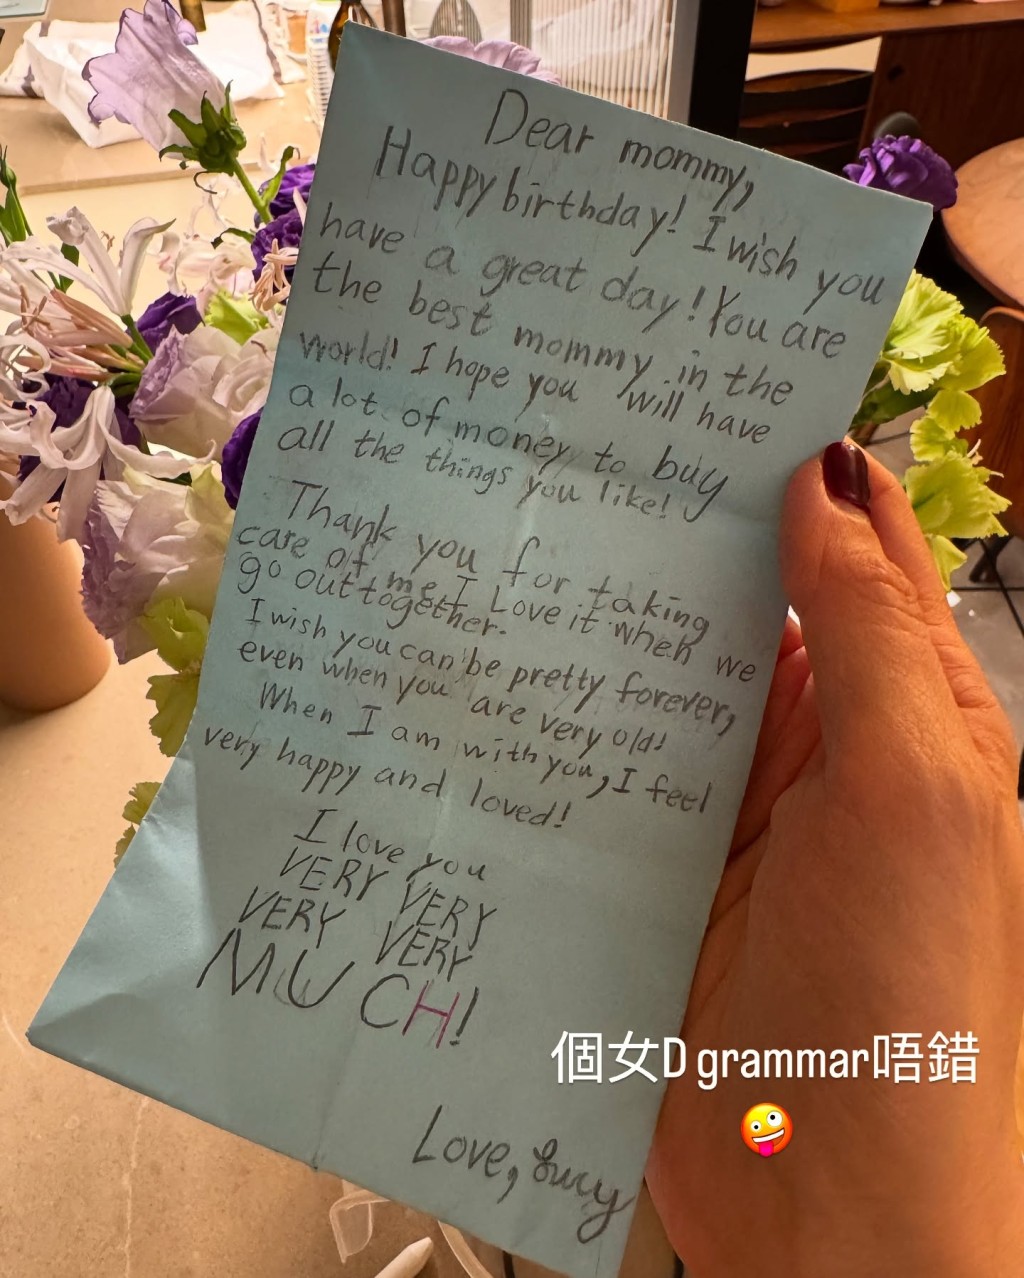 Dear mommy,
Happy birthday! I wish you
have a great day! You are
the best mommy in the
world! I hope you will have
a lot of money to buy
all the things you like!
Thank you for taking
care of me. I Love it when we
go out together.
I wish you can be pretty forever,
even when you are very old!
When I am with you, I feel
very happy and loved!
I love you
VERY VERY
VERY VERY
MUCH!
Love, Lucy
個女D grammar唔錯
🤪